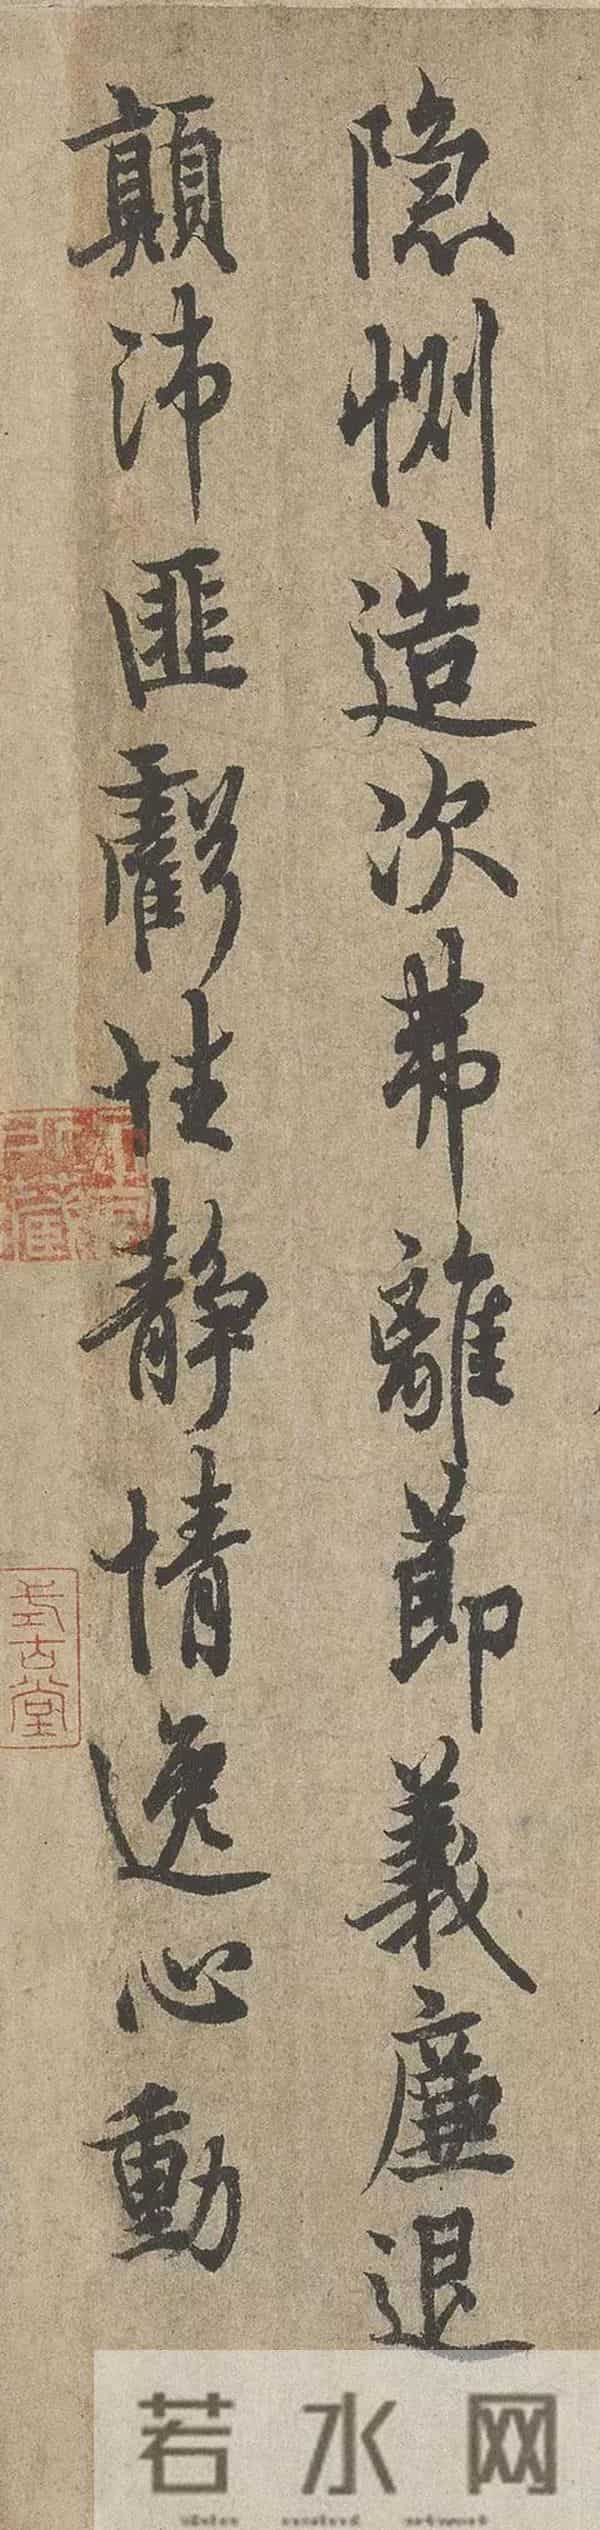 隐恻造次弗離節義廉退
顛沛匪虧性靜情逸心動
式古堂
若水网